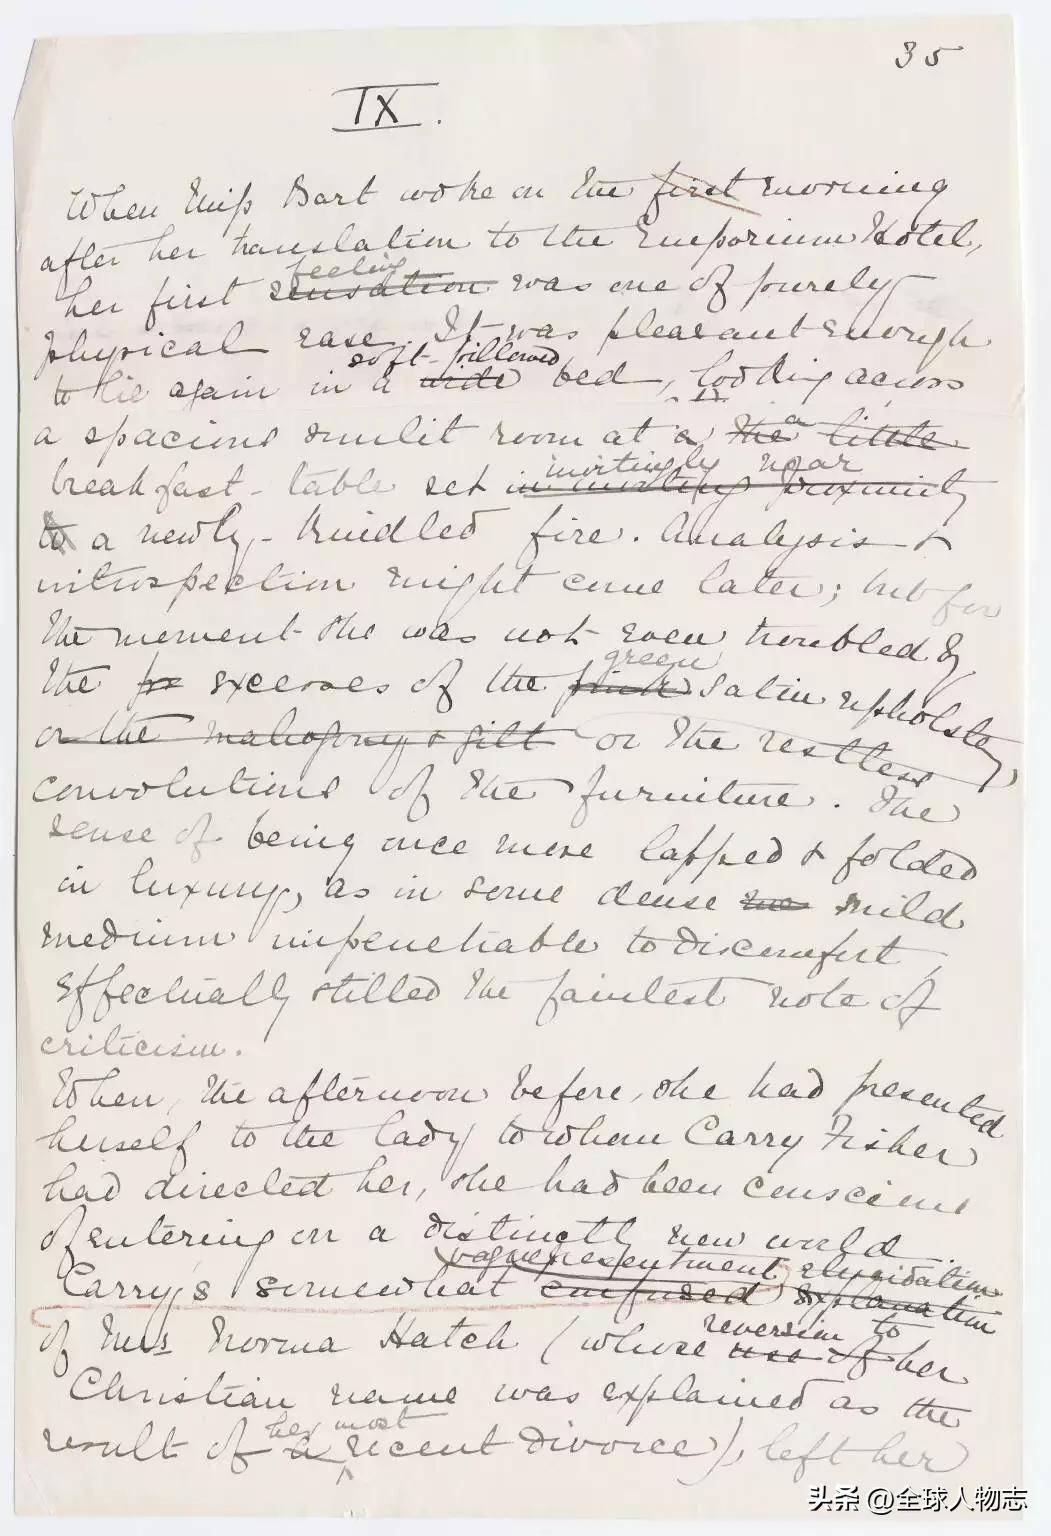 35
IX.
When Miss Bart woke on the first morning
after her translation to the Emporium Hotel,
feeling
her first sensation was one of purely
physical ease. It was pleasant enough
soft-pillowed
to lie again in a wide bed, looking across
a spacious sunlit room at a the a little
invitingly near
breakfast-table set in inviting proximity
to a newly-kindled fire. Analysis &
introspection might come later; but for
the moment she was not even troubled by
green
the excesses of the pink satin upholstery,
or the mahogany & gilt or the restless
convolutions of the furniture. The
sense of being once more lapped & folded
in luxury, as in some dense mild
medium impenetrable to discomfort,
effectually stilled the faintest note of
criticism.
When, the afternoon before, she had presented
herself to the lady to whom Carry Fisher
had directed her, she had been conscious
of entering on a distinctly new world
vague presentment elucidation
Carry's somewhat confused explanation
reversion to
of Mrs Norma Hatch (whose use of her
Christian name was explained as the
her most
result of a recent divorce), left her
头条 @全球人物志